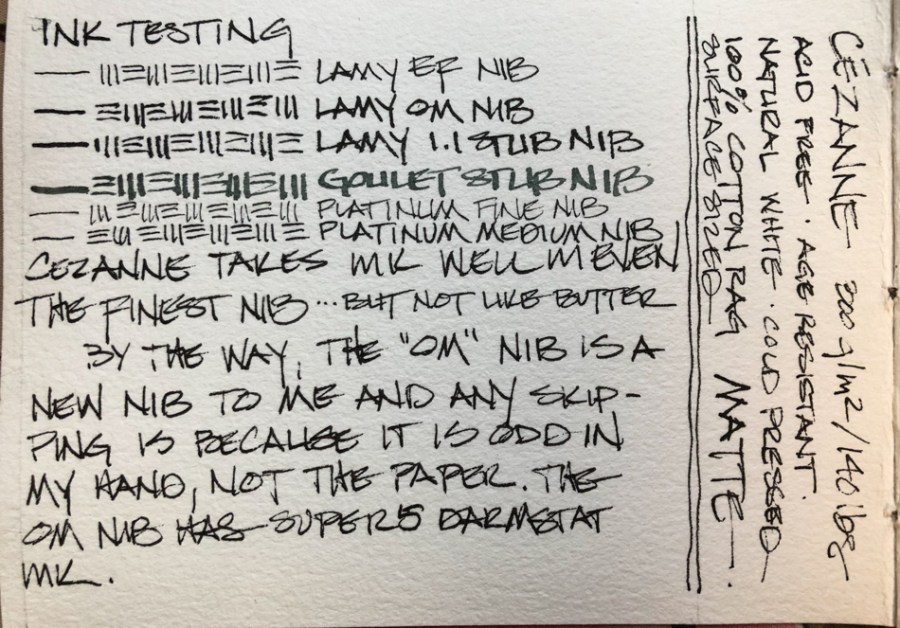 INK TESTING
LAMY EF NIB
LAMY OM NIB
LAMY 1.1 STUB NIB
GOULET STUB NIB
PLATINUM FINE NIB
PLATINUM MEDIUM NIB
CEZANNE TAKES INK WELL W EVEN
THE FINEST NIB ... BUT NOT LIKE BUTTER
BY THE WAY, THE "OM" NIB IS A
NEW NIB TO ME AND ANY SKIP-
PING IS BECAUSE IT IS ODD IN
MY HAND, NOT THE PAPER. THE
OM NIB HAS SUPER5 DARMSTAT
INK.
CÉZANNE 300g/m2/140 lbs
ACID FREE · AGE RESISTANT ·
NATURAL WHITE · COLD PRESSED
100% COTTON RAG MATTE.
SURFACE SIZED